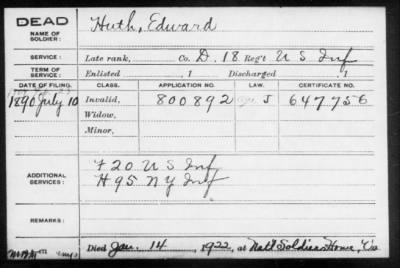 DEAD
NAME OF SOLDIER:
Huth, Edward
SERVICE:
Late rank, Co. D, 18 Reg't U S Inf
TERM OF SERVICE:
Enlisted , 1 Discharged , 1
DATE OF FILING. CLASS. APPLICATION NO. LAW. CERTIFICATE NO.
1890 July 10 Invalid, 800892 J 647756
Widow,
Minor,
ADDITIONAL SERVICES:
F 20 U S Inf
H 95 N Y Inf
REMARKS:
Died Jan. 14, 1922, at Nat'l Soldiers Home, Va